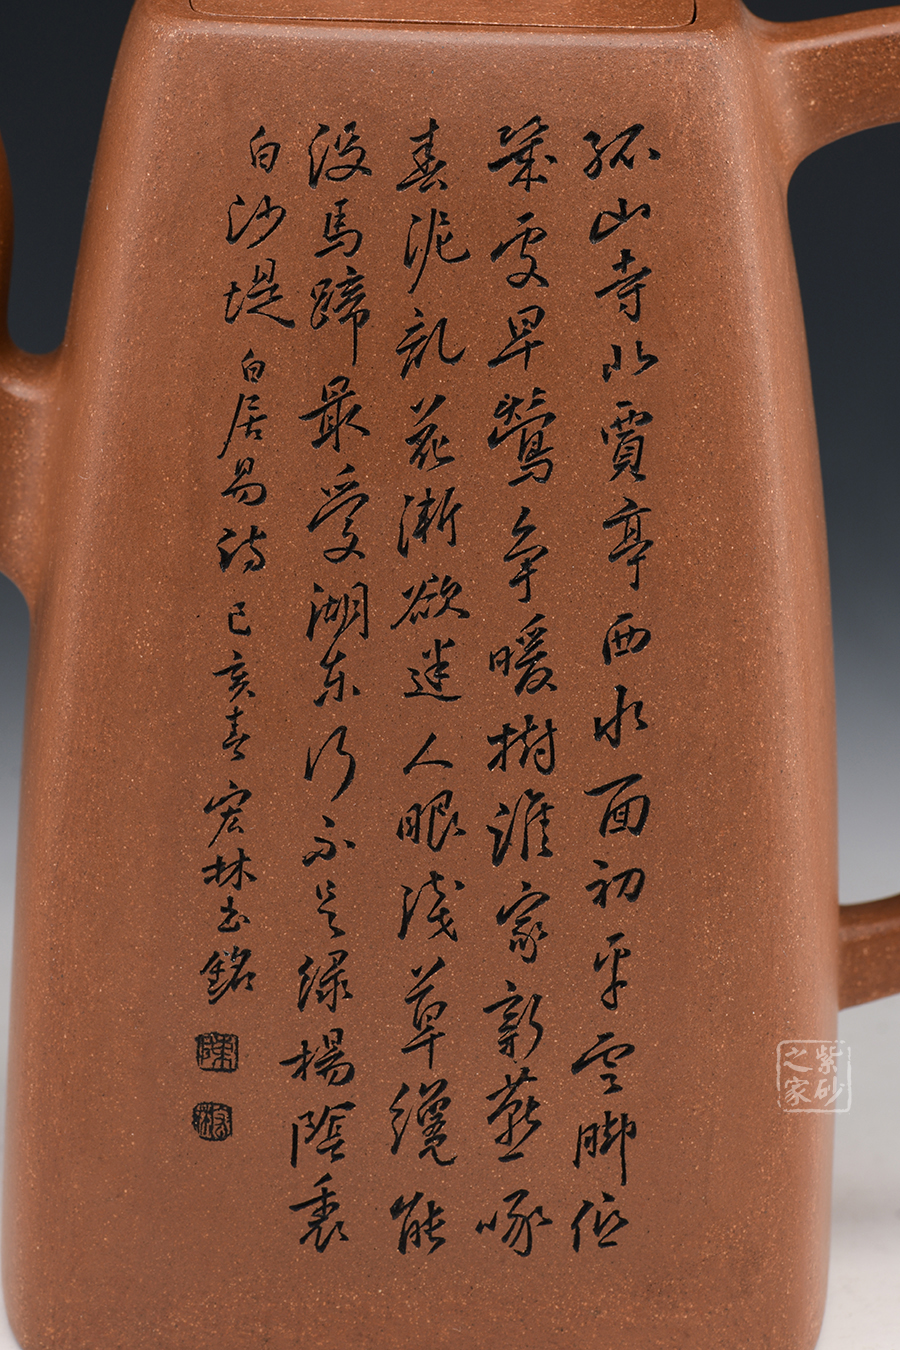 孤山寺北賈亭西水面初平雲脚低
幾處早鶯爭暖樹誰家新燕啄
春泥亂花漸欲迷人眼淺草纔能
没馬蹄最愛湖東行不足緑楊陰裏
白沙堤 白居易詩 己亥春 宏林書銘
陳
宏林
紫砂
之家